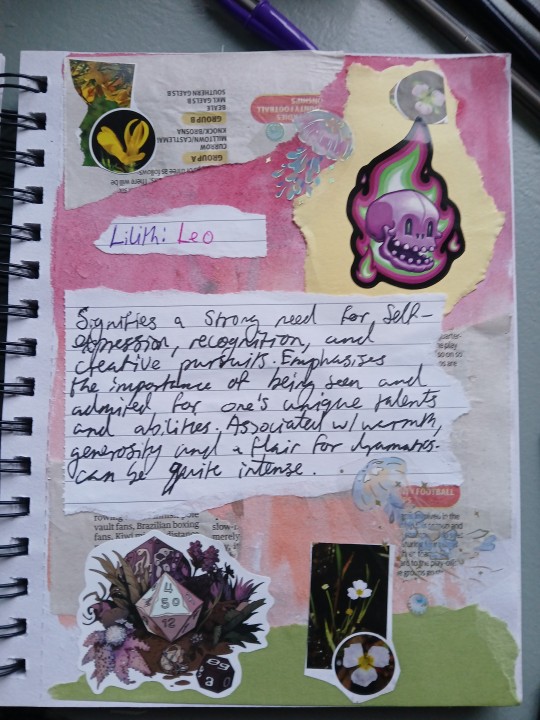 SOUTHERN GAELS B
MKL GAELS B
BEALE
GROUP B
KNOCK/BROSNA
CURROW
MILLTOWN/CASTLEMAI
GROUP A
as follows
There will be
FOOTBALL
Lilith: Leo
Signifies a strong need for self-
expression, recognition, and
creative pursuits. Emphasises
the importance of being seen and
admired for one's unique talents
and abilities. Associated w/ warmth,
generosity and a flair for dramatics.
can be quite intense.
FOOTBALL
rowing
vault fans, Brazilian boxing
fans. Kiwi
slow-
merely
4
50
12